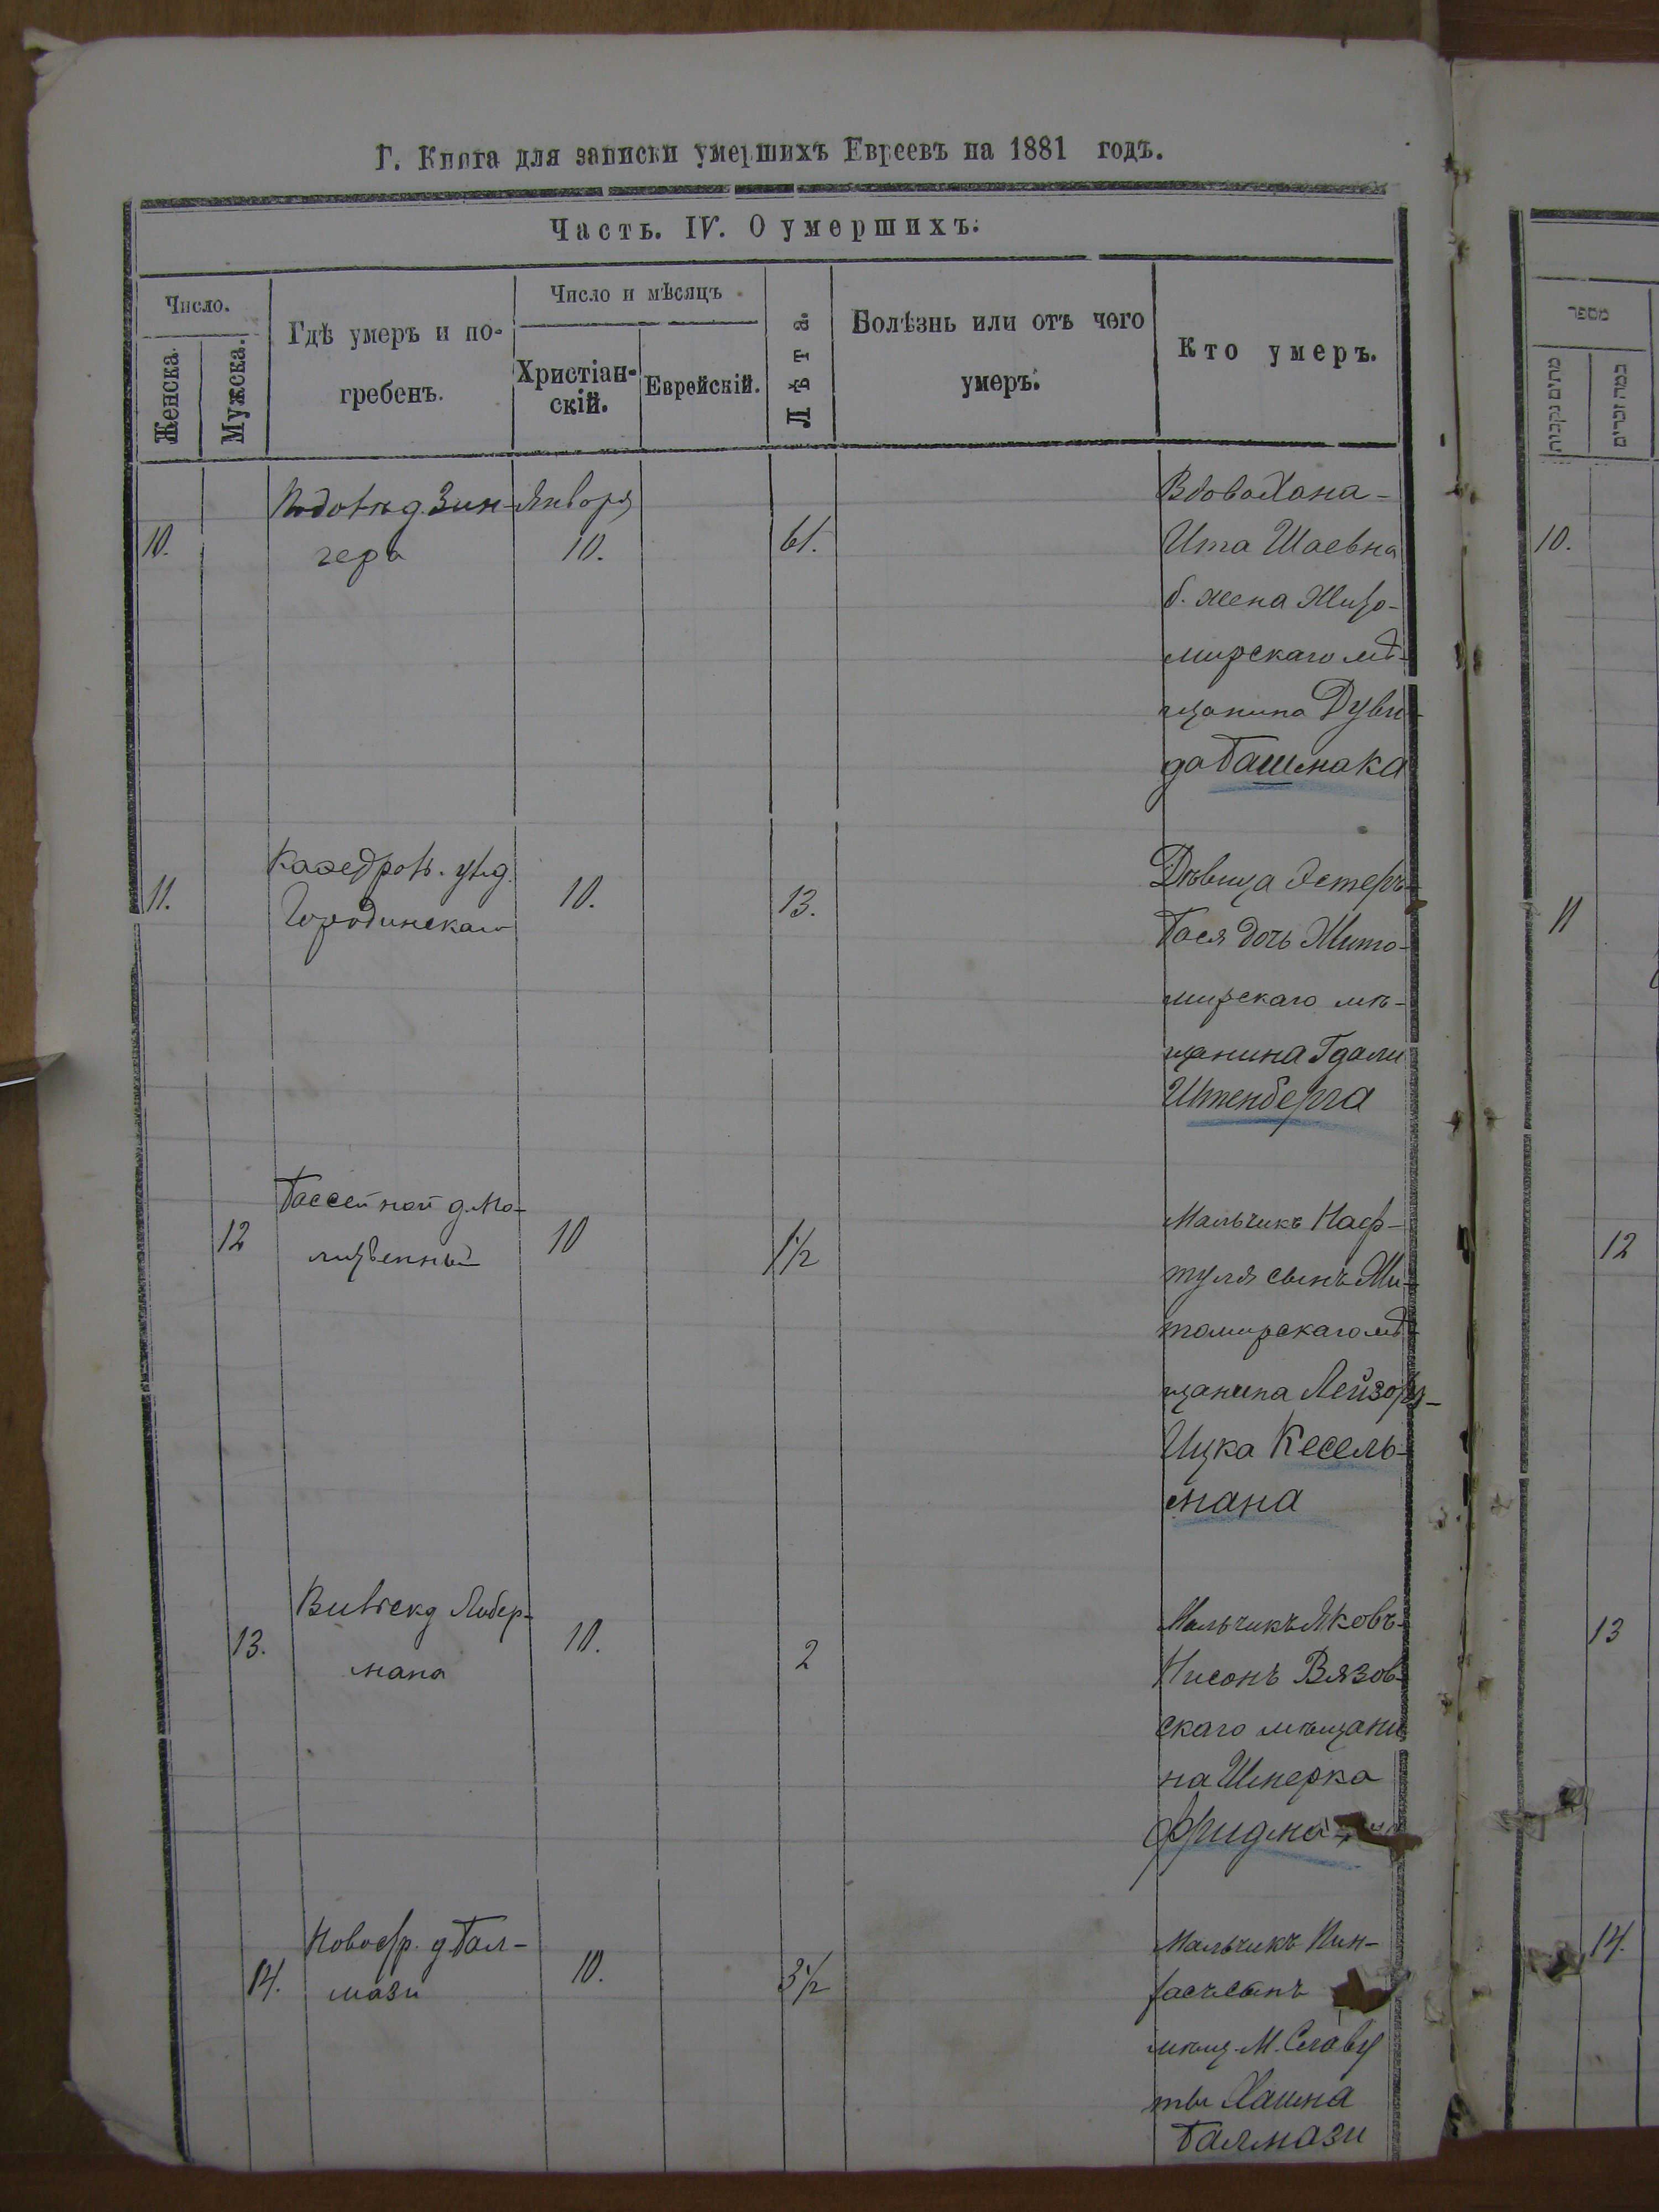 Г. Книга для записки умершихъ Евреевъ на 1881 годъ.
Часть. IV. О умершихъ.
Число.
Женска.
Мужска.
Гдѣ умеръ и по-
гребенъ.
Число и мѣсяцъ
Христіан-
скій.
Еврейскій.
Лѣта.
Болѣзнь или отъ чего
умеръ.
Кто умеръ.
10.
д. Зин-
гера
Января
10.
61.
Вдова Хана-
Ита Шаевна
б. жена Жито-
мирскаго мѣ-
щанина Дуви-
да Башмака
11.
Кафедрон. ул д.
Городинскаго
10.
13.
Дѣвица Эстеръ-
Бася дочь Жито-
мирскаго мѣ-
щанина Гдали
Штенберга
12
Бассейной д. Мо-
литвенный
10
1 1/2
Мальчикъ Наф-
туля сынъ Жи-
томирскаго мѣ-
щанина Лейзора-
Ицка Кесель-
мана
13.
д Либер-
мана
10.
2
Мальчикъ Яковъ-
Нисонъ Вязов-
скаго мѣщани
на Шмерка
Фридма-на
14.
д Бал-
мази
10.
3 1/2
Мальчикъ Пин-
хасъ сынъ
мѣщ. М. Славу
ты Хаима
Балмази
מספר
מתים נקבות
כמה זכרים
10.
11
12
13
14.